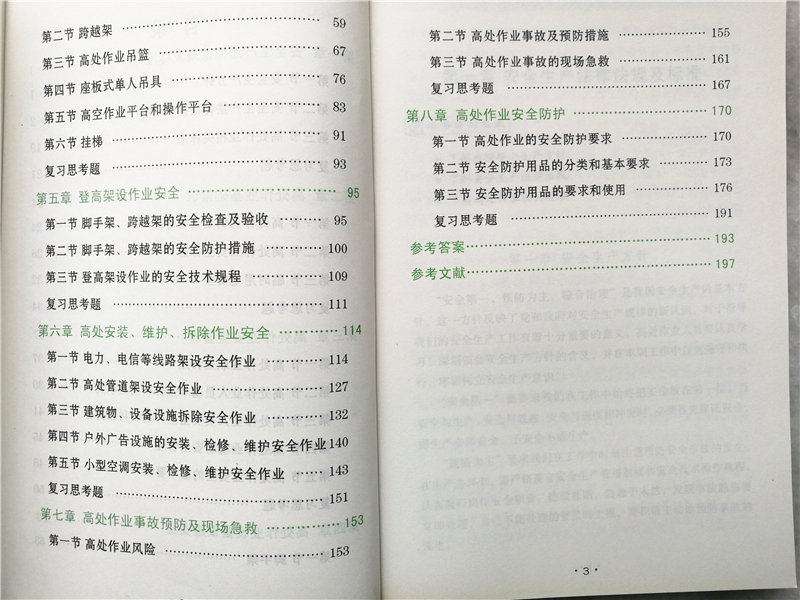 第二节 跨越架 ………… 59
第三节 高处作业吊篮 ………… 67
第四节 座板式单人吊具 ………… 76
第五节 高空作业平台和操作平台 ………… 83
第六节 挂梯 ………… 91
复习思考题 ………… 93
第五章 登高架设作业安全 ………… 95
第一节 脚手架、跨越架的安全检查及验收 ………… 95
第二节 脚手架、跨越架的安全防护措施 ………… 100
第三节 登高架设作业的安全技术规程 ………… 109
复习思考题 ………… 111
第六章 高处安装、维护、拆除作业安全 ………… 114
第一节 电力、电信等线路架设安全作业 ………… 114
第二节 高处管道架设安全作业 ………… 127
第三节 建筑物、设备设施拆除安全作业 ………… 132
第四节 户外广告设施的安装、检修、维护安全作业 140
第五节 小型空调安装、检修、维护安全作业 ………… 143
复习思考题 ………… 151
第七章 高处作业事故预防及现场急救 ………… 153
第一节 高处作业风险 ………… 153
第二节 高处作业事故及预防措施 ………… 155
第三节 高处作业事故的现场急救 ………… 161
复习思考题 ………… 167
第八章 高处作业安全防护 ………… 170
第一节 高处作业的安全防护要求 ………… 170
第二节 安全防护用品的分类和基本要求 ………… 173
第三节 安全防护用品的要求和使用 ………… 176
复习思考题 ………… 191
参考答案 ………… 193
参考文献 ………… 197
· 3 ·